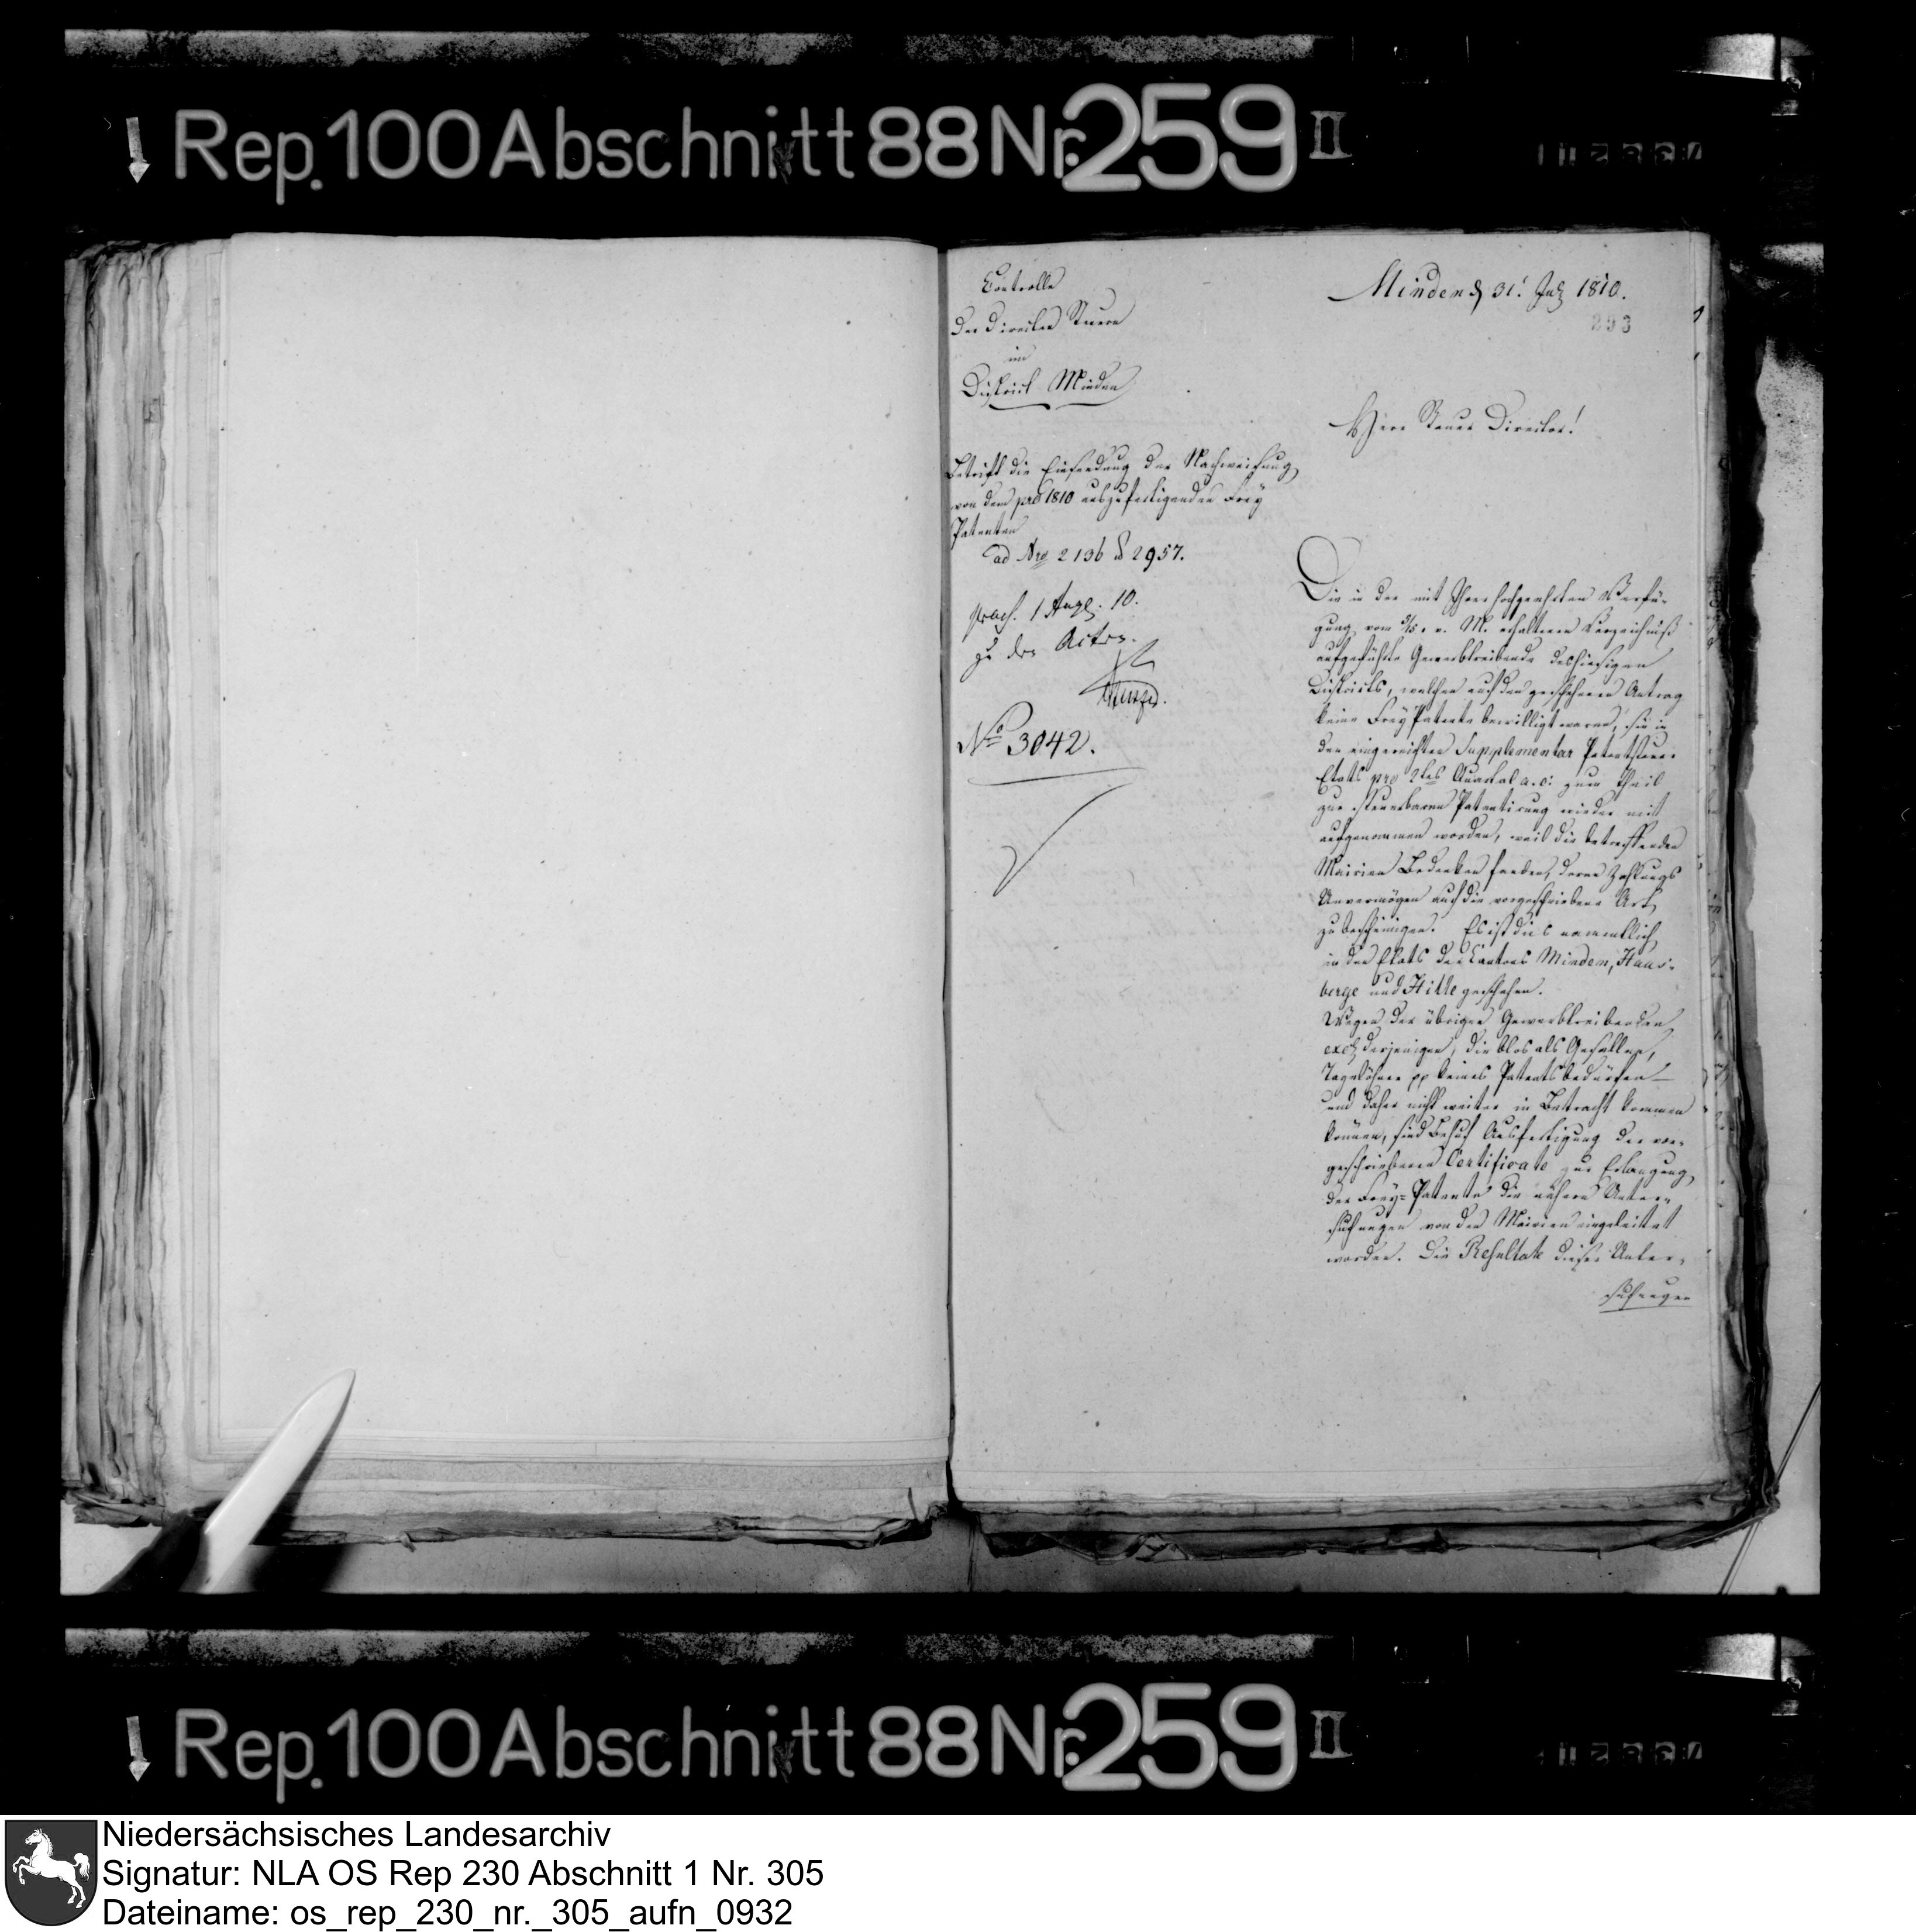 Rep. 100 Abschnitt 88 Nr. 259 II
Controlle
der directen Steuern
im
District Minden
Minden d 31t July 1810.
293
Herr Steuer Director!
Betrift die Einsendung der Nachweisung
von den pro 1810 auszufertigenden Frey
Patenten
ad Nro 2136 & 2957.
praes. 1 Aug. 10.
zu den Acten.
No 3042.
Die in der mit Ihrer hochgeehrten Verfü-
gung vom v. M. erhaltenen Verzeichniß
aufgeführte Gewerbtreibende des hiesigen
Districts, welchen auf den geschehenen Antrag
keine Frey Patente bewilligt waren, sind in
den eingereichten Supplementar Patentsteuer
Etats pro 2tes Quartal a. c. zum Theil
zur steuerbaren Patentirung wieder mit
aufgenommen worden, weil die betreffenden
Mairien Bedenken fanden, deren Zahlungs
Unvermögen auf die vorgeschriebene Art
zu bescheinigen. Es ist dies namentlich
in den Etats der Cantons Minden, Haus-
berge und Hille geschehen.
Wegen der übrigen Gewerbtreibenden
excl. derjenigen, die blos als Gesellen,
Tagelöhner pp keines Patents bedürfen —
und daher nicht weiter in Betracht kommen
können, sind Behuf Ausfertigung der vor-
geschriebenen Certificate zur Erlangung
der Frey-Patente die nähern Unter-
suchungen von den Mairien eingeleitet
worden. Die Resultate dieser Unter-
suchungen
Rep. 100 Abschnitt 88 Nr. 259 II
Niedersächsisches Landesarchiv
Signatur: NLA OS Rep 230 Abschnitt 1 Nr. 305
Dateiname: os_rep_230_nr._305_aufn_0932